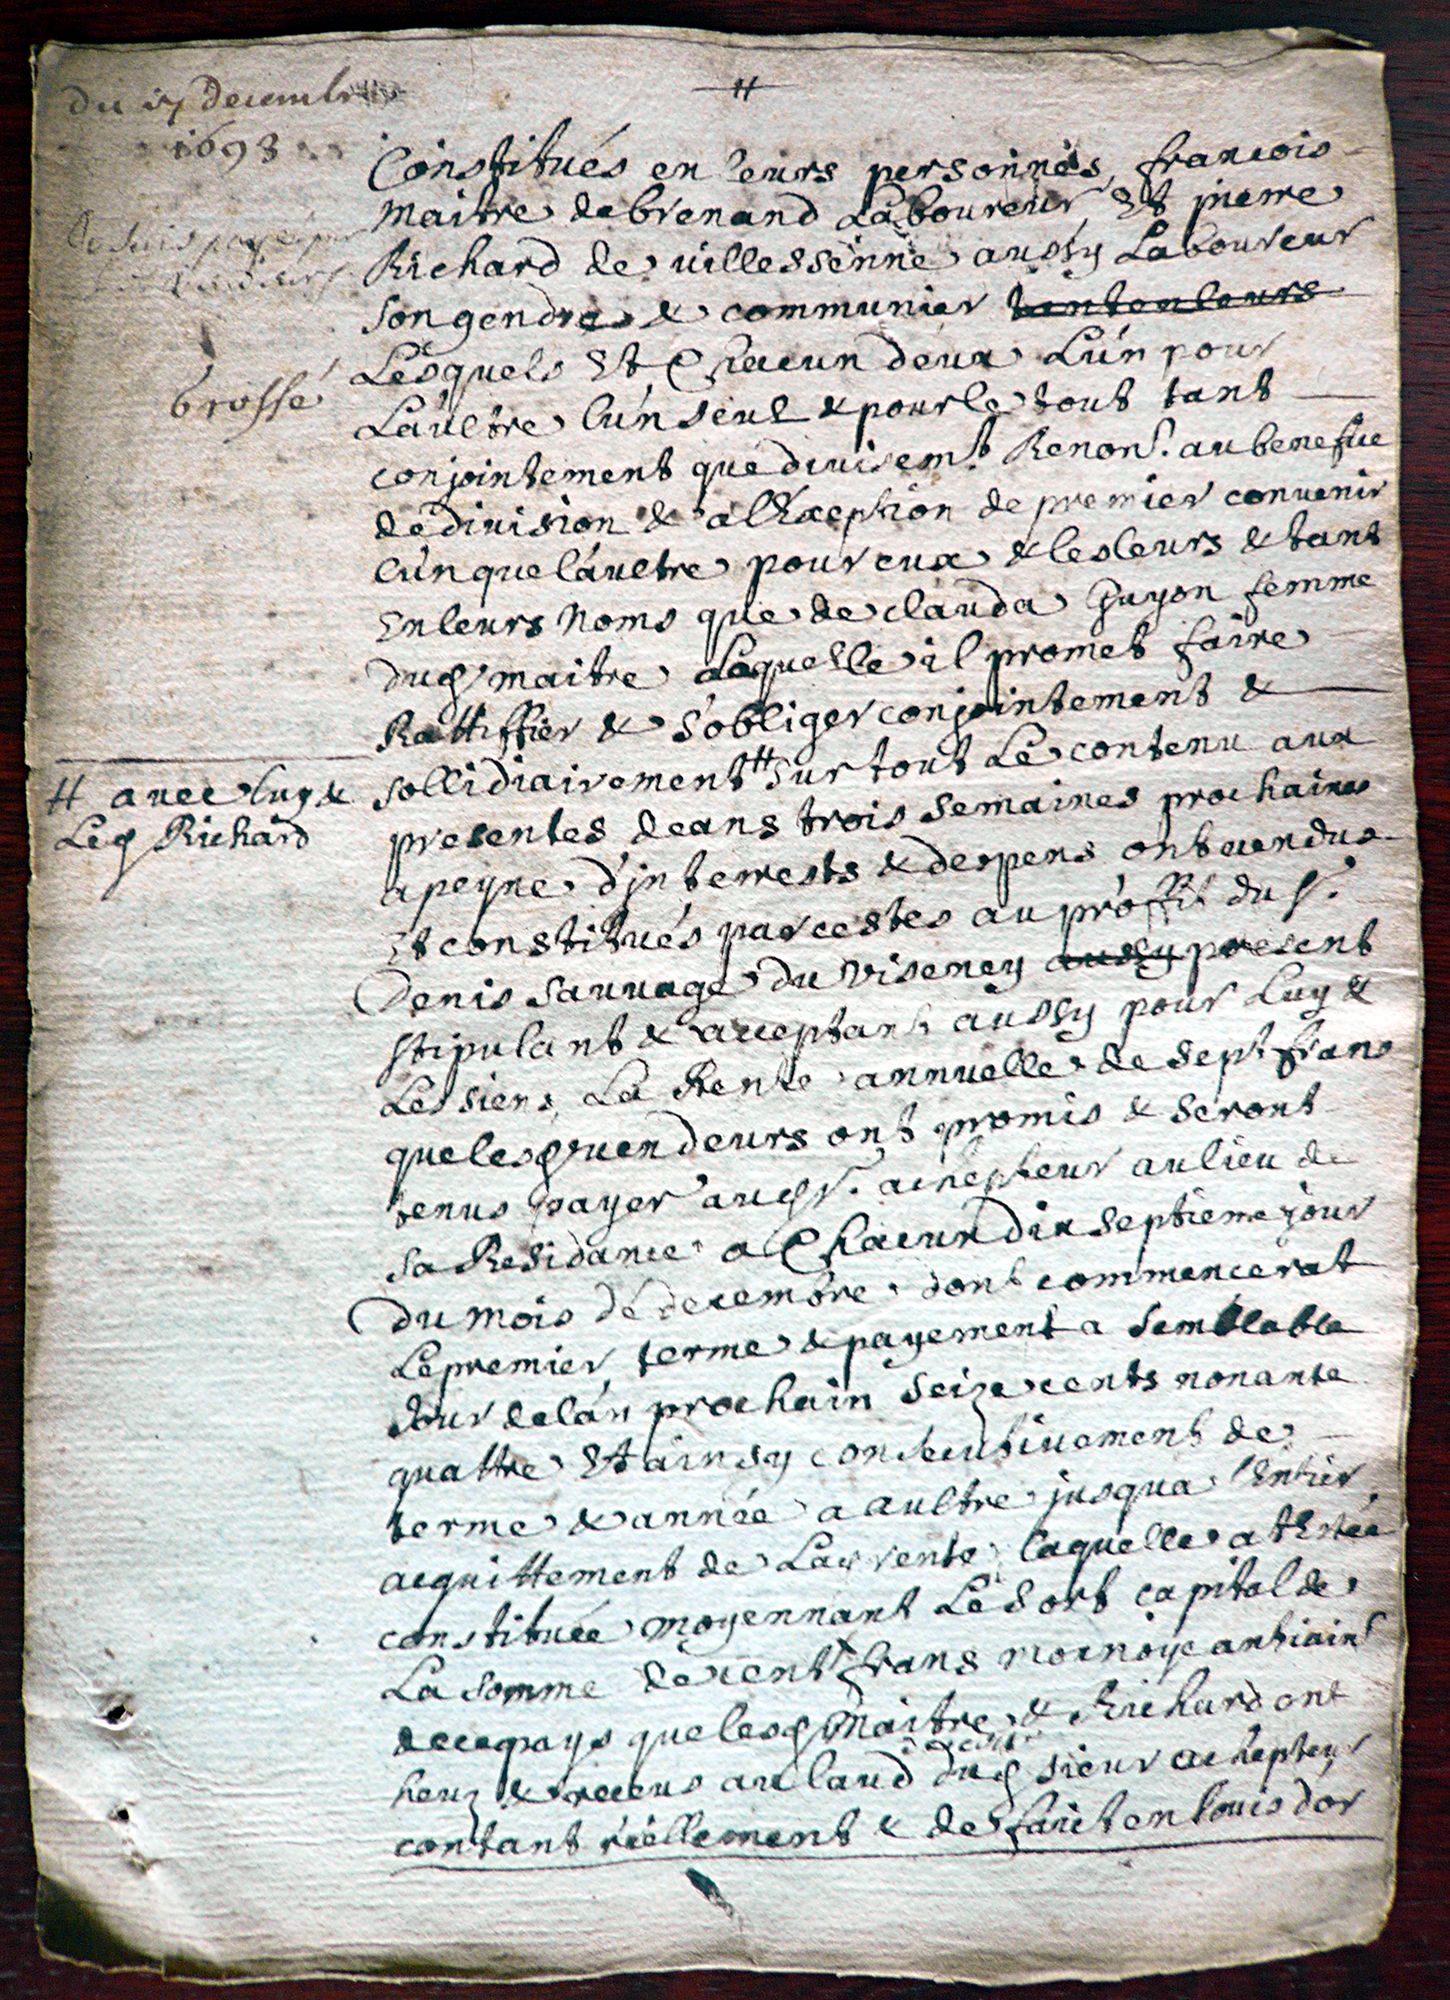 du 17 decembre
1693
Je suis payé par
brossé
Constitués en leurs personnes, francois
maitre de brenand Laboureur Et pierre
Richard de villessenne aussy Laboureur
son gendre & communier tant en leurs
Lesquels Et Chacun deux Lun pour
Laultre lun seul & pour le tout tant
conjointement que divisemt. Renons. au benefice
de division & a lException de premier convenir
lun que laultre pour eux & les leurs & tant
En leurs Noms que de clauda Guyon femme
dud maitre Laquelle il promet faire
Rattiffier & sobliger conjointement &
sollidiairement # sur tout Le contenu aux
# avec luy &
Led Richard
presentes deans trois semaines prochaines
a peyne djnterrests & despens ont vendus
Et constitués par cestes au proffit du sr.
Denis sauvage du Viseney aussy present
stipulant & acceptant aussy pour Luy &
Les siens La Rente annuelle de sept frans
que lesd vendeurs ont promis & seront
tenus payer aud sr. achepteur au lieu de
sa Residance a Chacun dix septieme jour
du mois de decembre dont commencerat
Le premier terme & payement a semblable
Jour de lan prochain seize cents nonante
quattre Et ainsy consecutivement de
terme & année a aultre jusqua lEntier
acquittement de Lad rente laquelle at Estée
constituée moyennant Le sort capital de
La somme de cent frans monnoye
de ce pays que lesd Maitre & Richard ont
heuz & receus dud sieur achepteur
contant réellement & de faict en louis dor